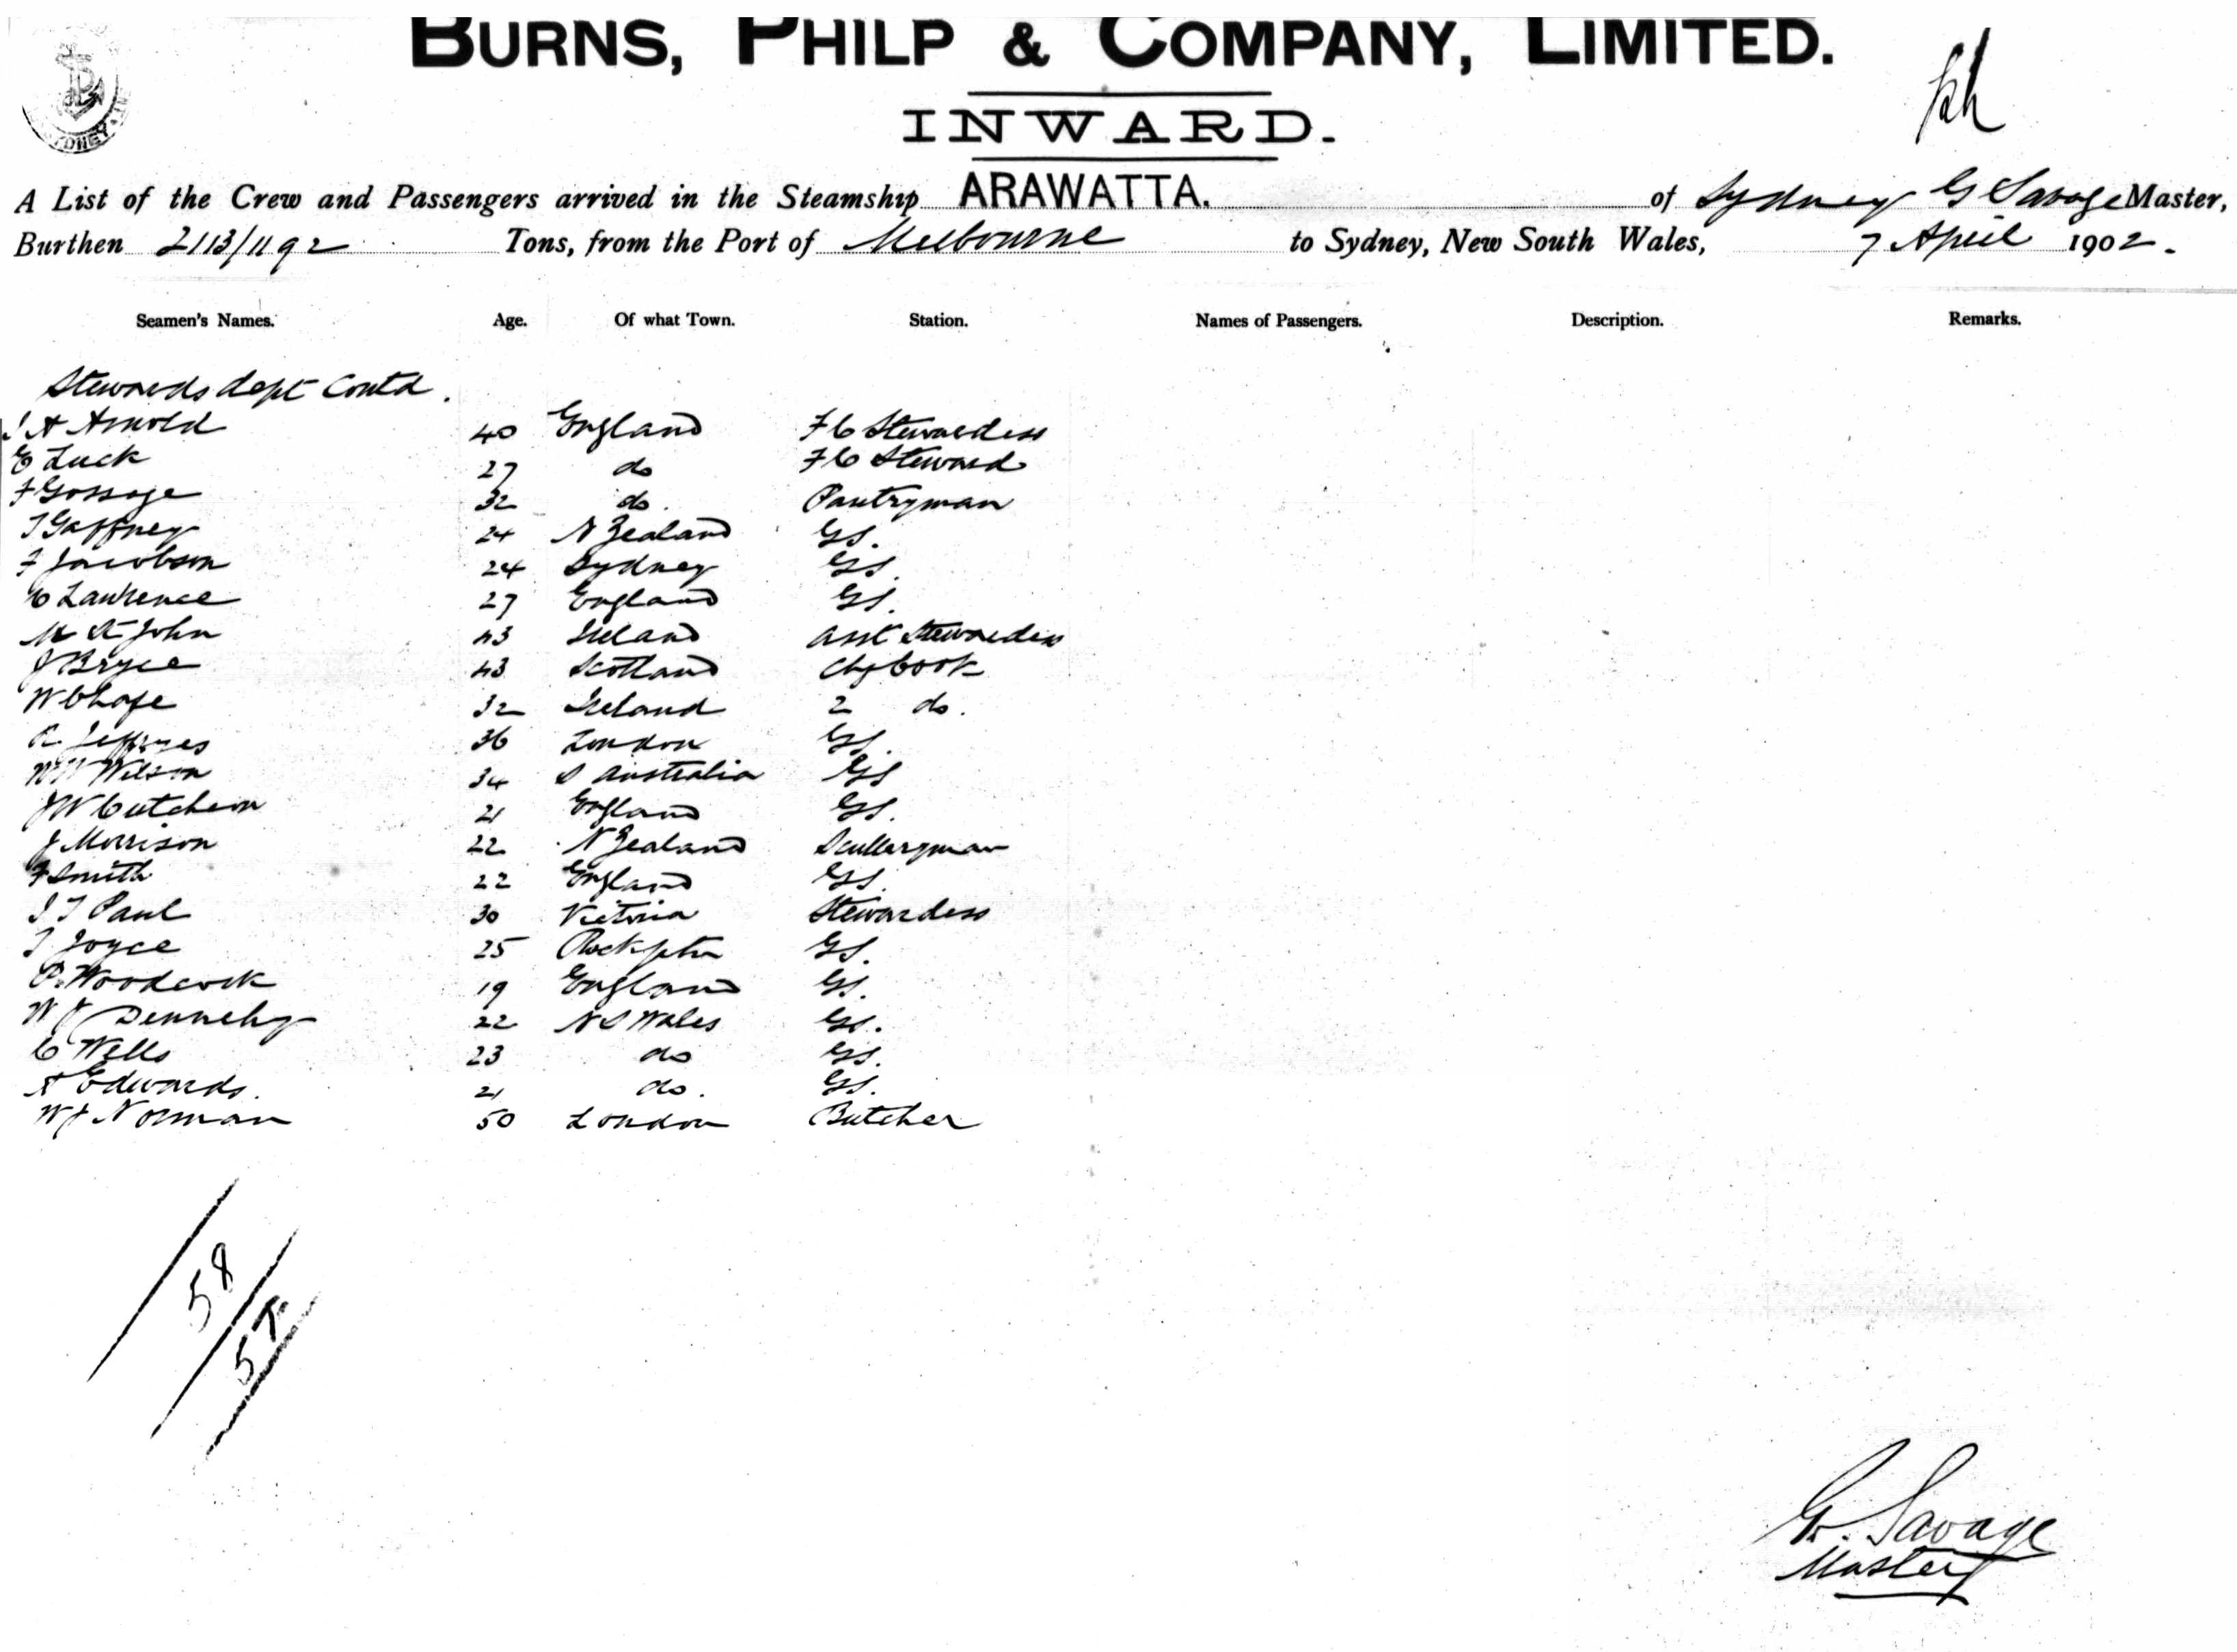 BURNS, PHILP & COMPANY, LIMITED.
INWARD.
A List of the Crew and Passengers arrived in the Steamship ARAWATTA. of Sydney G Savage Master,
Burthen 2113/1192 Tons, from the Port of Melbourne to Sydney, New South Wales, 7 April 1902.
Seamen's Names. Age. Of what Town. Station. Names of Passengers. Description. Remarks.
Stewards dept Contd.
A Arnold 40 England F C Stewardess
E Luck 27 do F C Steward
F Gossage 32 do. Pantryman
T Gaffney 24 N Zealand GS.
F Jacobson 24 Sydney GS.
C Lawrence 27 England GS.
M St John 43 Ireland Asst Stewardess
J Bryce 43 Scotland Cook
W Chafe 32 Ireland 2 do.
Jeffries 36 London GS.
Wilson 34 S Australia GS
J W Cutcheon 21 England GS.
J Morrison 22 N Zealand Sculleryman
F Smith 22 England GS.
Paul 30 Victoria Stewardess
Joyce 25 Rockhptn GS.
Woodcock 19 England GS.
W J Dennehy 22 N S Wales GS.
C Wells 23 do GS.
A Edwards. 21 do. GS.
W J Norman 50 London Butcher
58
G. Savage
Master